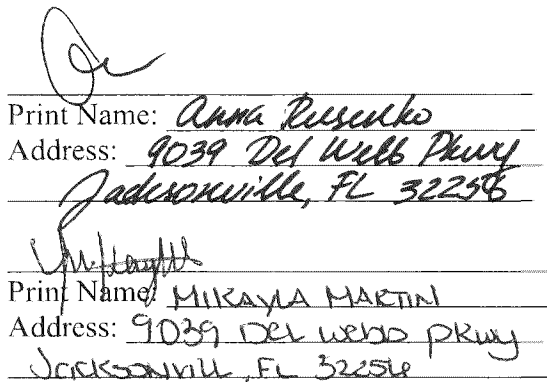 Print Name: Anna Rusulko
Address: 9039 Del Webb Pkwy
Jacksonville, FL 32256
Print Name: MIKAYLA MARTIN
Address: 9039 Del Webb Pkwy
Jacksonvill, FL 32256